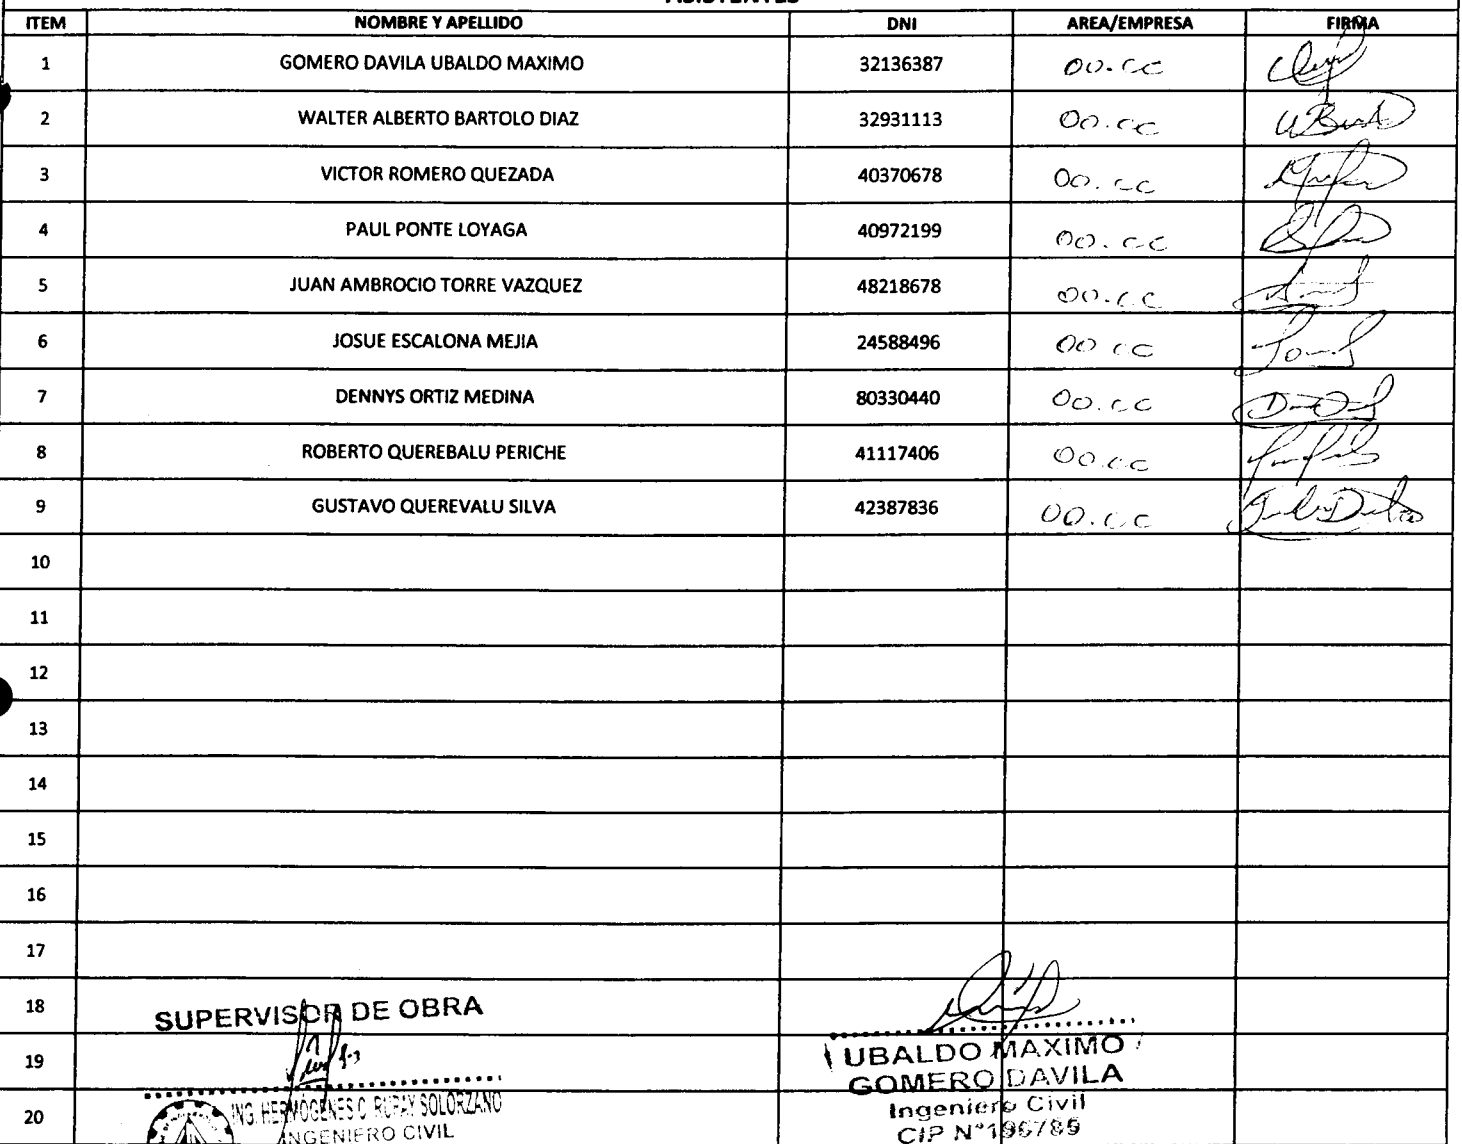 ASISTENTES
ITEM NOMBRE Y APELLIDO DNI AREA/EMPRESA FIRMA
1 GOMERO DAVILA UBALDO MAXIMO 32136387 OO.CC
2 WALTER ALBERTO BARTOLO DIAZ 32931113 OO.CC
3 VICTOR ROMERO QUEZADA 40370678 OO.CC
4 PAUL PONTE LOYAGA 40972199 OO.CC
5 JUAN AMBROCIO TORRE VAZQUEZ 48218678 OO.CC
6 JOSUE ESCALONA MEJIA 24588496 OO CC
7 DENNYS ORTIZ MEDINA 80330440 OO.CC
8 ROBERTO QUEREBALU PERICHE 41117406 OO.CC
9 GUSTAVO QUEREVALU SILVA 42387836 OO.CC
10
11
12
13
14
15
16
17
18 SUPERVISOR DE OBRA
19 UBALDO MAXIMO
GOMERO DAVILA
20 ING. HERMÓGENES C. RUPAY SOLORZANO Ingeniero Civil
INGENIERO CIVIL CIP N°196789